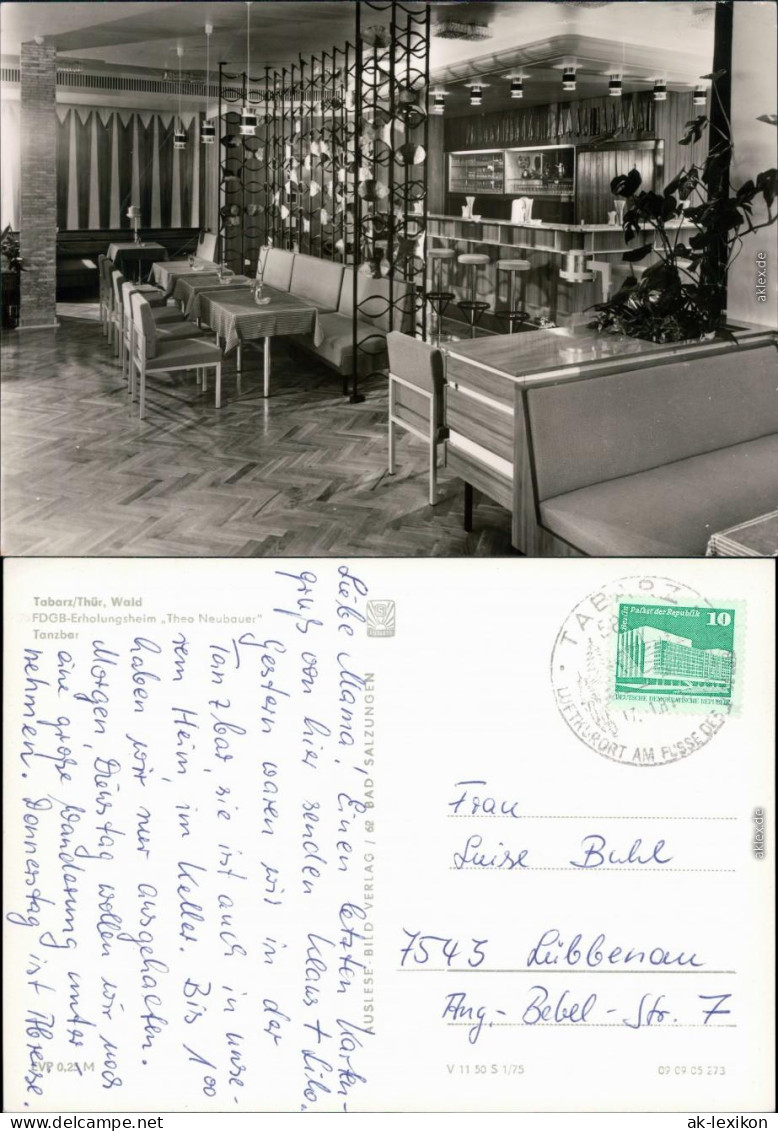 Tabarz/Thür, Wald
FDGB-Erholungsheim „Theo Neubauer"
Tanzbar
Liebe Mama! Einen letzten Karten-
gruß von hier senden Klaus + Lilo.
Gestern waren wir in der
Tanzbar, sie ist auch in unse-
rem Heim, im Keller. Bis 1 00
haben wir nur ausgehalten.
Morgen, Dienstag wollen wir noch
eine große Wanderung unter-
nehmen. Donnerstag ist Abreise.
EVP 0,25 M
AUSLESE-BILD-VERLAG / 62 BAD SALZUNGEN
TABARZ
LUFTKURORT AM FUSSE DES
Berlin Palast der Republik 10
DEUTSCHE DEMOKRATISCHE REPUBLIK
Frau
Luise Buhl
7543 Lübbenau
Aug.-Bebel-Str. 7
V 11 50 S 1/75
09 09 05 273
aklex.de
aklex.de
www.ak-lexikon.de
ak-lexikon.com